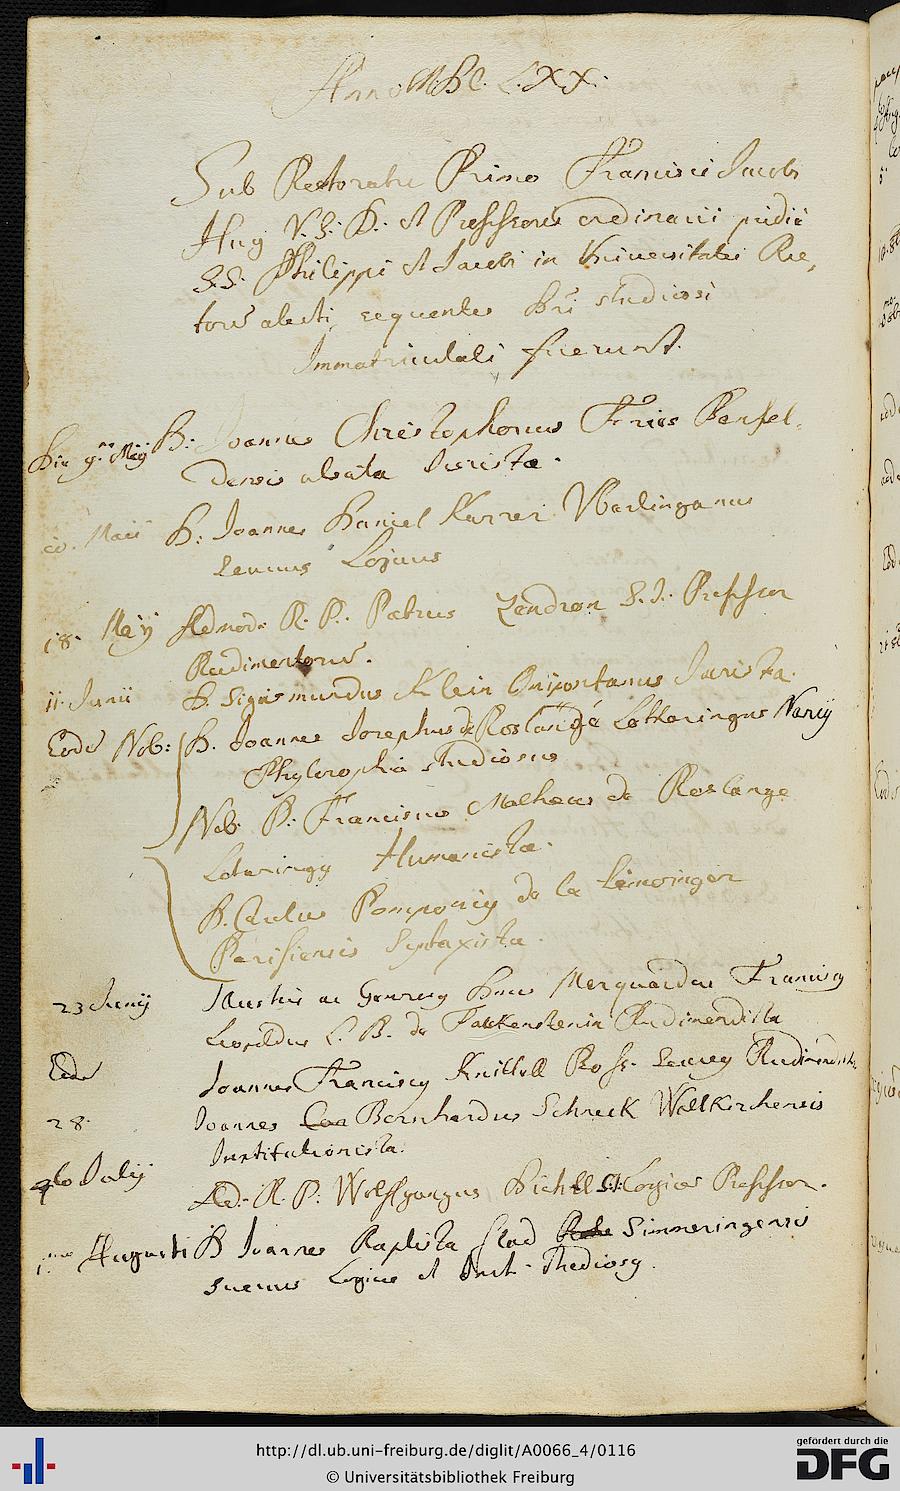 Anno M.D.C.LXX.
Sub Rectoratu Primo Francisci Jacobi
Hug V.I.D. et Professoris ordinarii pridie
S.S. Philippi et Jacobi in Universitatis Rec,
torē electi, sequentes Dni studiosi
Immatriculati fuerunt.
Die 9. Maij D: Joannes Christophorus Fries Benfel-
densis alsata Jurista.
10. Maii D: Joannes Daniel Karrer Vberlinganus
Suevus Logicus
18. Maij Admod. R. P. Petrus Zendron S.J. Professor
Rudimentorū.
11. Junii D. Sigismundus Klein Jurista.
Eodē Nob: D. Joannes Josephus de Roslange Lotharingus Nancij
Phylosophiæ studiosus
Nob. D. Franciscus Matheus de Roslange
Lotaringg Humanista.
D. Carolus Pomponig de la
Parisiensis Syntaxista.
23 Junij Illustris ac Generosg Dnus Marquardus Franciscg
Leopoldus L. B. de Falckenstein Rudimentista
Eodē Joannes Franciscg Knittell Suevg Rudimentista
28. Joannes Bernhardus Schreck Waltkirchensis
Institutionista.
Julij Ad. R. P. Wolffgangus S.J. Logicæ Professor.
1mo Augusti D Joannes Baptista Simmeringensis
Suevus Logicæ et Inst. studiosg.
http://dl.ub.uni-freiburg.de/diglit/A0066_4/0116
© Universitätsbibliothek Freiburg
gefördert durch die
DFG